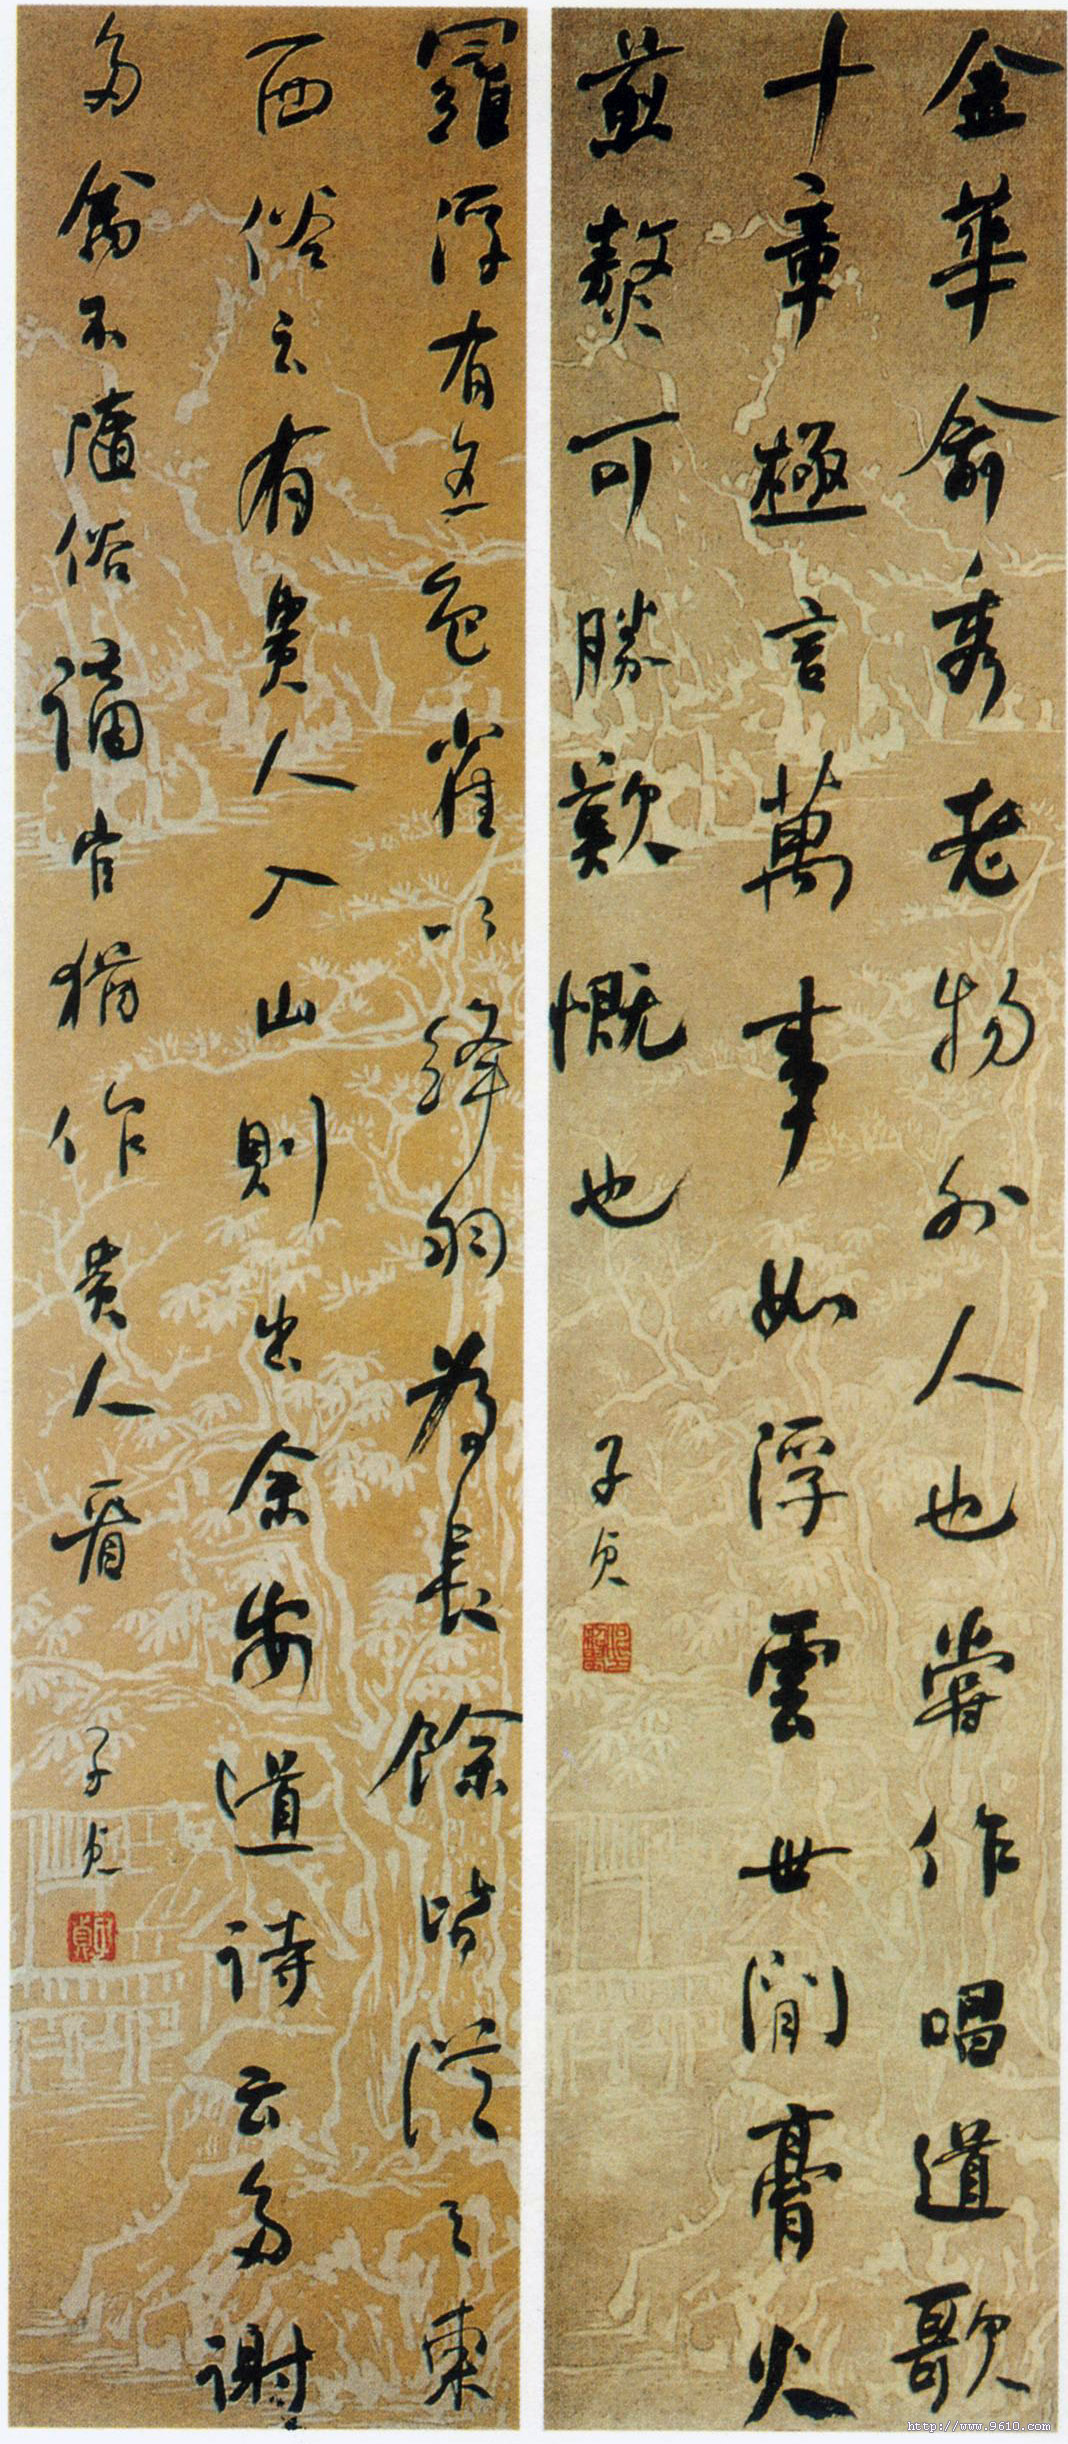 金華俞秀老物外人也嘗作唱道歌
十章極言萬事如浮雲世間膏火
煎熬可勝歎慨也
子貞
羅浮有五色雀以絳羽為長餘皆從之東
西俗云有貴人入山則出余安道詩云多謝
多禽不隨俗謫官猶作貴人看
子貞
http://www.9610.com